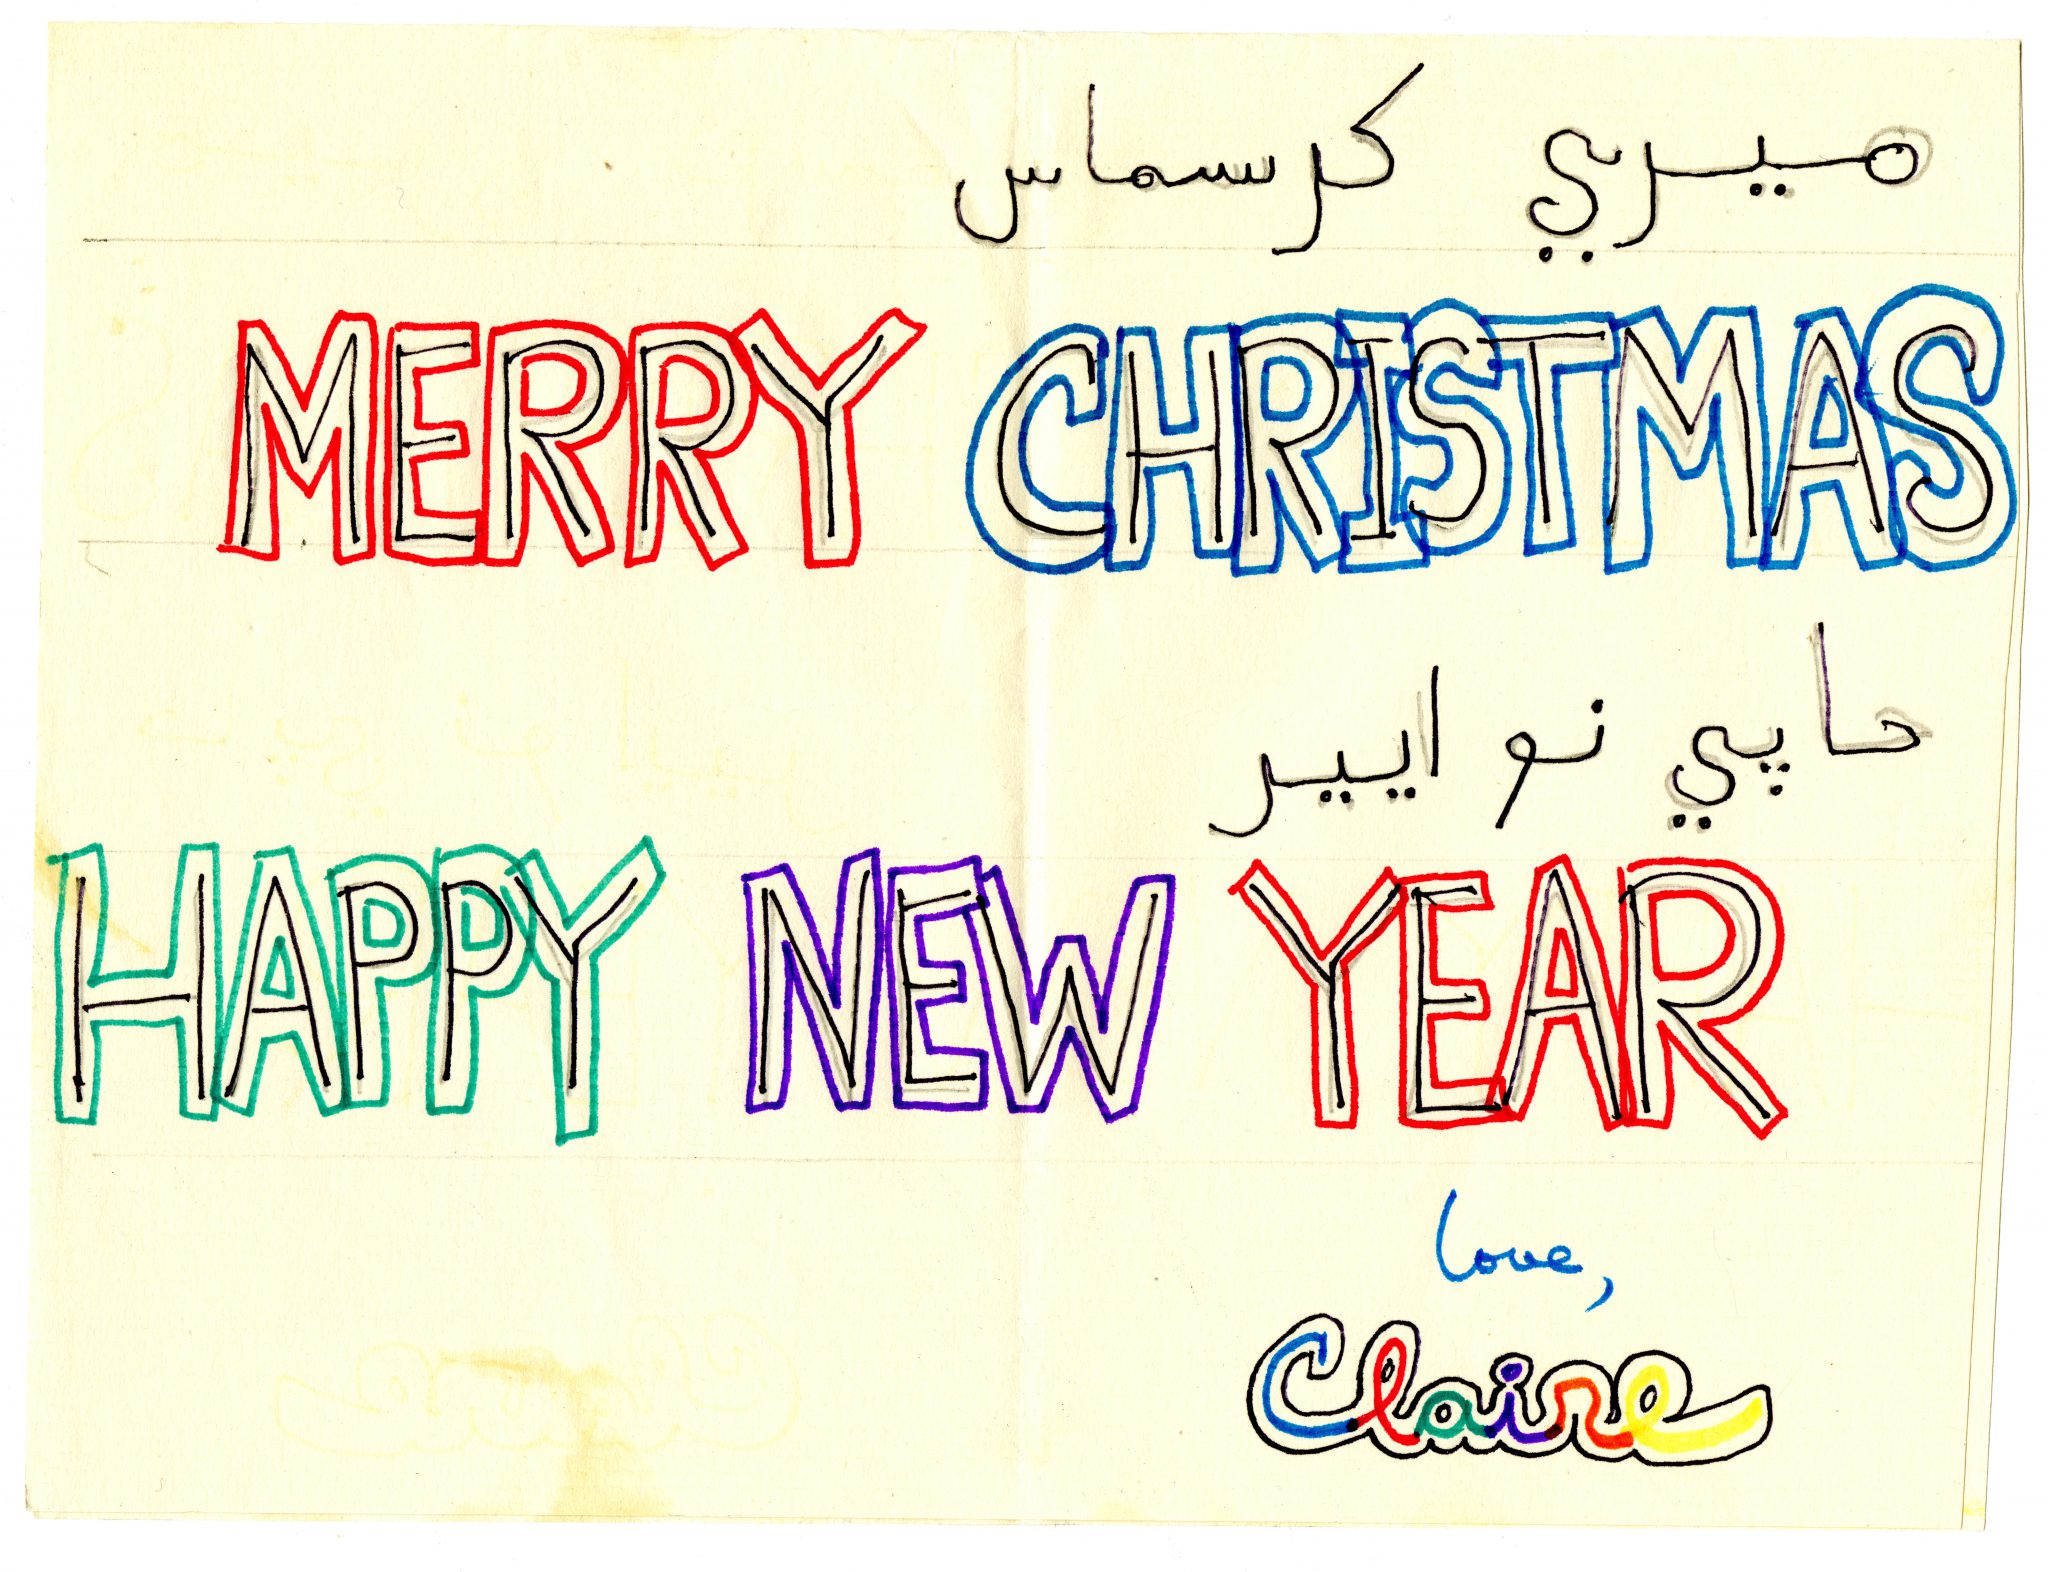 ميري كرسماس
MERRY CHRISTMAS
حابي نو اييير
HAPPY NEW YEAR
love,
Claire